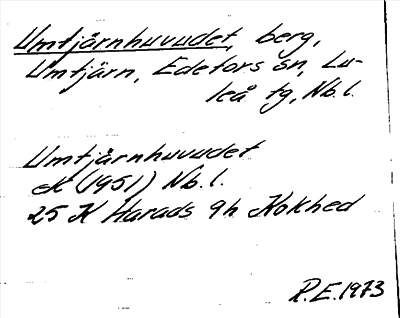 Umtjärnhuvudet, berg,
Umtjärn, Edefors sn, Lu-
leå tg, Nb.l.
Umtjärnhuvudet
eK (1951) Nb.l.
25 K Harads 9h Kokhed
R.E. 1973